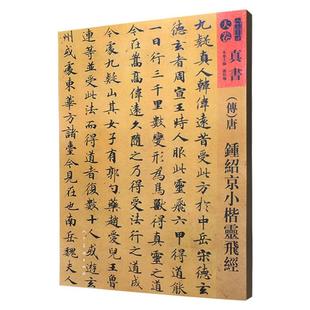 天卷
真書
(傳)唐
鍾紹京小楷靈飛經
九疑真人韓偉遠昔受方于中岳宋德玄
德玄者周宣王時人服此靈飛六甲得道能
一日行三千里數變形為鳥獸得真靈之道
今在嵩高偉遠久隨之乃得受法行之道成
今處九疑山其女子有郭勺藥趙愛兒王魯
連等並受此法而得道者復數十人或遊玄
州或處東華方諸臺今見在也南岳魏夫人